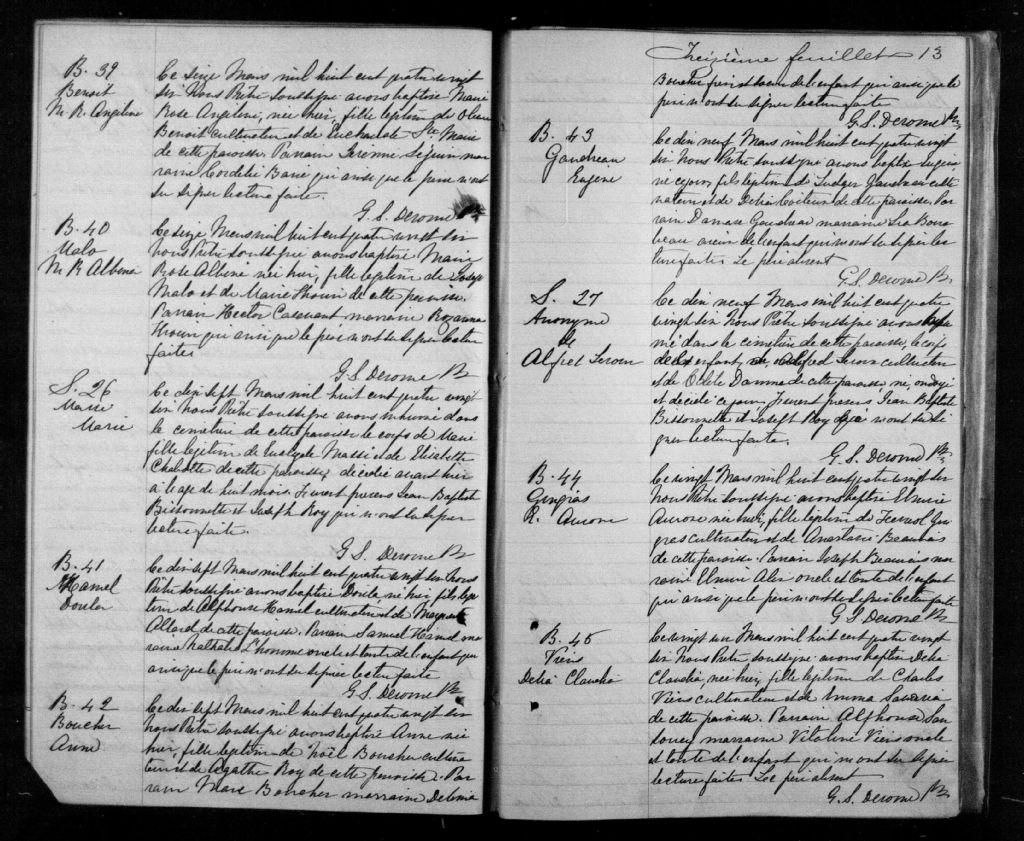 B. 39
Benoit
M. R. Angeline
Le seize Mars mil huit cent quatre vingt
six Nous Prêtre soussigné avons baptisé Marie
Rose Angeline, née hier, fille légitime de
Benoit cultivateur et de Eucharste Ste Marie
de cette paroisse. Parrain Jérémie Séguin mar
raine Cordélie Barré qui ainsi que le père n'ont
su signer lecture faite.
G. S. Derome Ptr
B. 40
Malo
M R Albina
Le seize Mars mil huit cent quatre vingt six
nous Prêtre soussigné avons baptisé Marie
Rose Albina née hier, fille légitime de Joseph
Malo et de Marie Drouin de cette paroisse.
Parrain Hector Casavant marraine Rozanna
Drouin qui ainsi que le père n'ont su signer lecture
faite.
G. S. Derome Ptr
S. 26
Marie
Marie
Le dix sept Mars mil huit cent quatre vingt
six nous Prêtre soussigné avons inhumé dans
le cimetière de cette paroisse le corps de Marie
fille légitime de Massi et de Elisabeth
Chalotte de cette paroisse, décédée avant hier
a l'age de huit mois. Furent presens Jean Baptist
Bissonnette et Joseph Roy qui n'ont su signer
lecture faite.
G. S. Derome Ptr
B. 41
Hamel
Doula
Le dix sept Mars mil huit cent quatre vingt six Nous
Prêtre soussigné avons baptisé né hier, fils légi
time de Alphonse Hamel cultivateur et de
Allard de cette paroisse. Parrain Samuel Hamel mar
raine L'homme oncle et tante de l'enfant qui
ainsi que le père n'ont su signer lecture faite
G. S. Derome Ptr
B. 42
Boucher
Anne
Le dix sept Mars mil huit cent quatre vingt six
Nous Prêtre soussigné avons baptisé Anne née
hier, fille légitime de Noël Boucher cultiva
teur et de Agathe Roy de cette paroisse. Par
rain Marc Boucher marraine Delima
Treizième feuillet 13
Boucher frère et soeur de l'enfant qui ainsi que le
père n'ont su signer lecture faite
G. S. Derome Ptr
B. 43
Gaudreau
Eugène
Le dix neuf Mars mil huit cent quatre vingt
six Nous Prêtre soussigné avons baptisé Eugène
né ce jour, fils légitime de Ludger Gaudreau culti
vateur et de Delia Loiteux de cette paroisse. Par
rain Damase Gaudreau marraine Lea Bour
beau de l'enfant qui n'ont su signer lec
ture faite. Le père absent
G. S. Derome Ptr
S. 27
Anonyme
de
Alfred
Le dix neuf Mars mil huit cent quatre
vingt six Nous Prêtre soussigné avons inhu
mé dans le cimetière de cette paroisse, le corps
d'un enfant, de Alfred cultivateur
et de Odile Damme de cette paroisse né, ondoyé
et décédé ce jour. Furent presens Jean Baptist
Bissonnette et Joseph Roy qui n'ont su si
gner lecture faite.
G. S. Derome Ptr
B. 44
Gingras
R. Aurore
Le vingt Mars mil huit cent quatre vingt six
Nous Prêtre soussigné avons baptisé
Aurore née hier, fille légitime de Gin
gras cultivateur et de Anastasie Beauvais
de cette paroisse. Parrain Joseph Beauvais mar
raine oncle et tante de l'enfant
qui ainsi que le père n'ont su signer lecture faite
G. S. Derome Ptr
B. 45
Viens
Delia Claudia
Le vingt un Mars mil huit cent quatre vingt
six Nous Prêtre soussigné avons baptisé Delia
Claudia, née hier, fille légitime de Charles
Viens cultivateur et de Emma
de cette paroisse. Parrain Alphonse San
soucy marraine Vitaline Viens oncle
et tante de l'enfant qui n'ont su signer
lecture faite. Le père absent
G. S. Derome Ptr